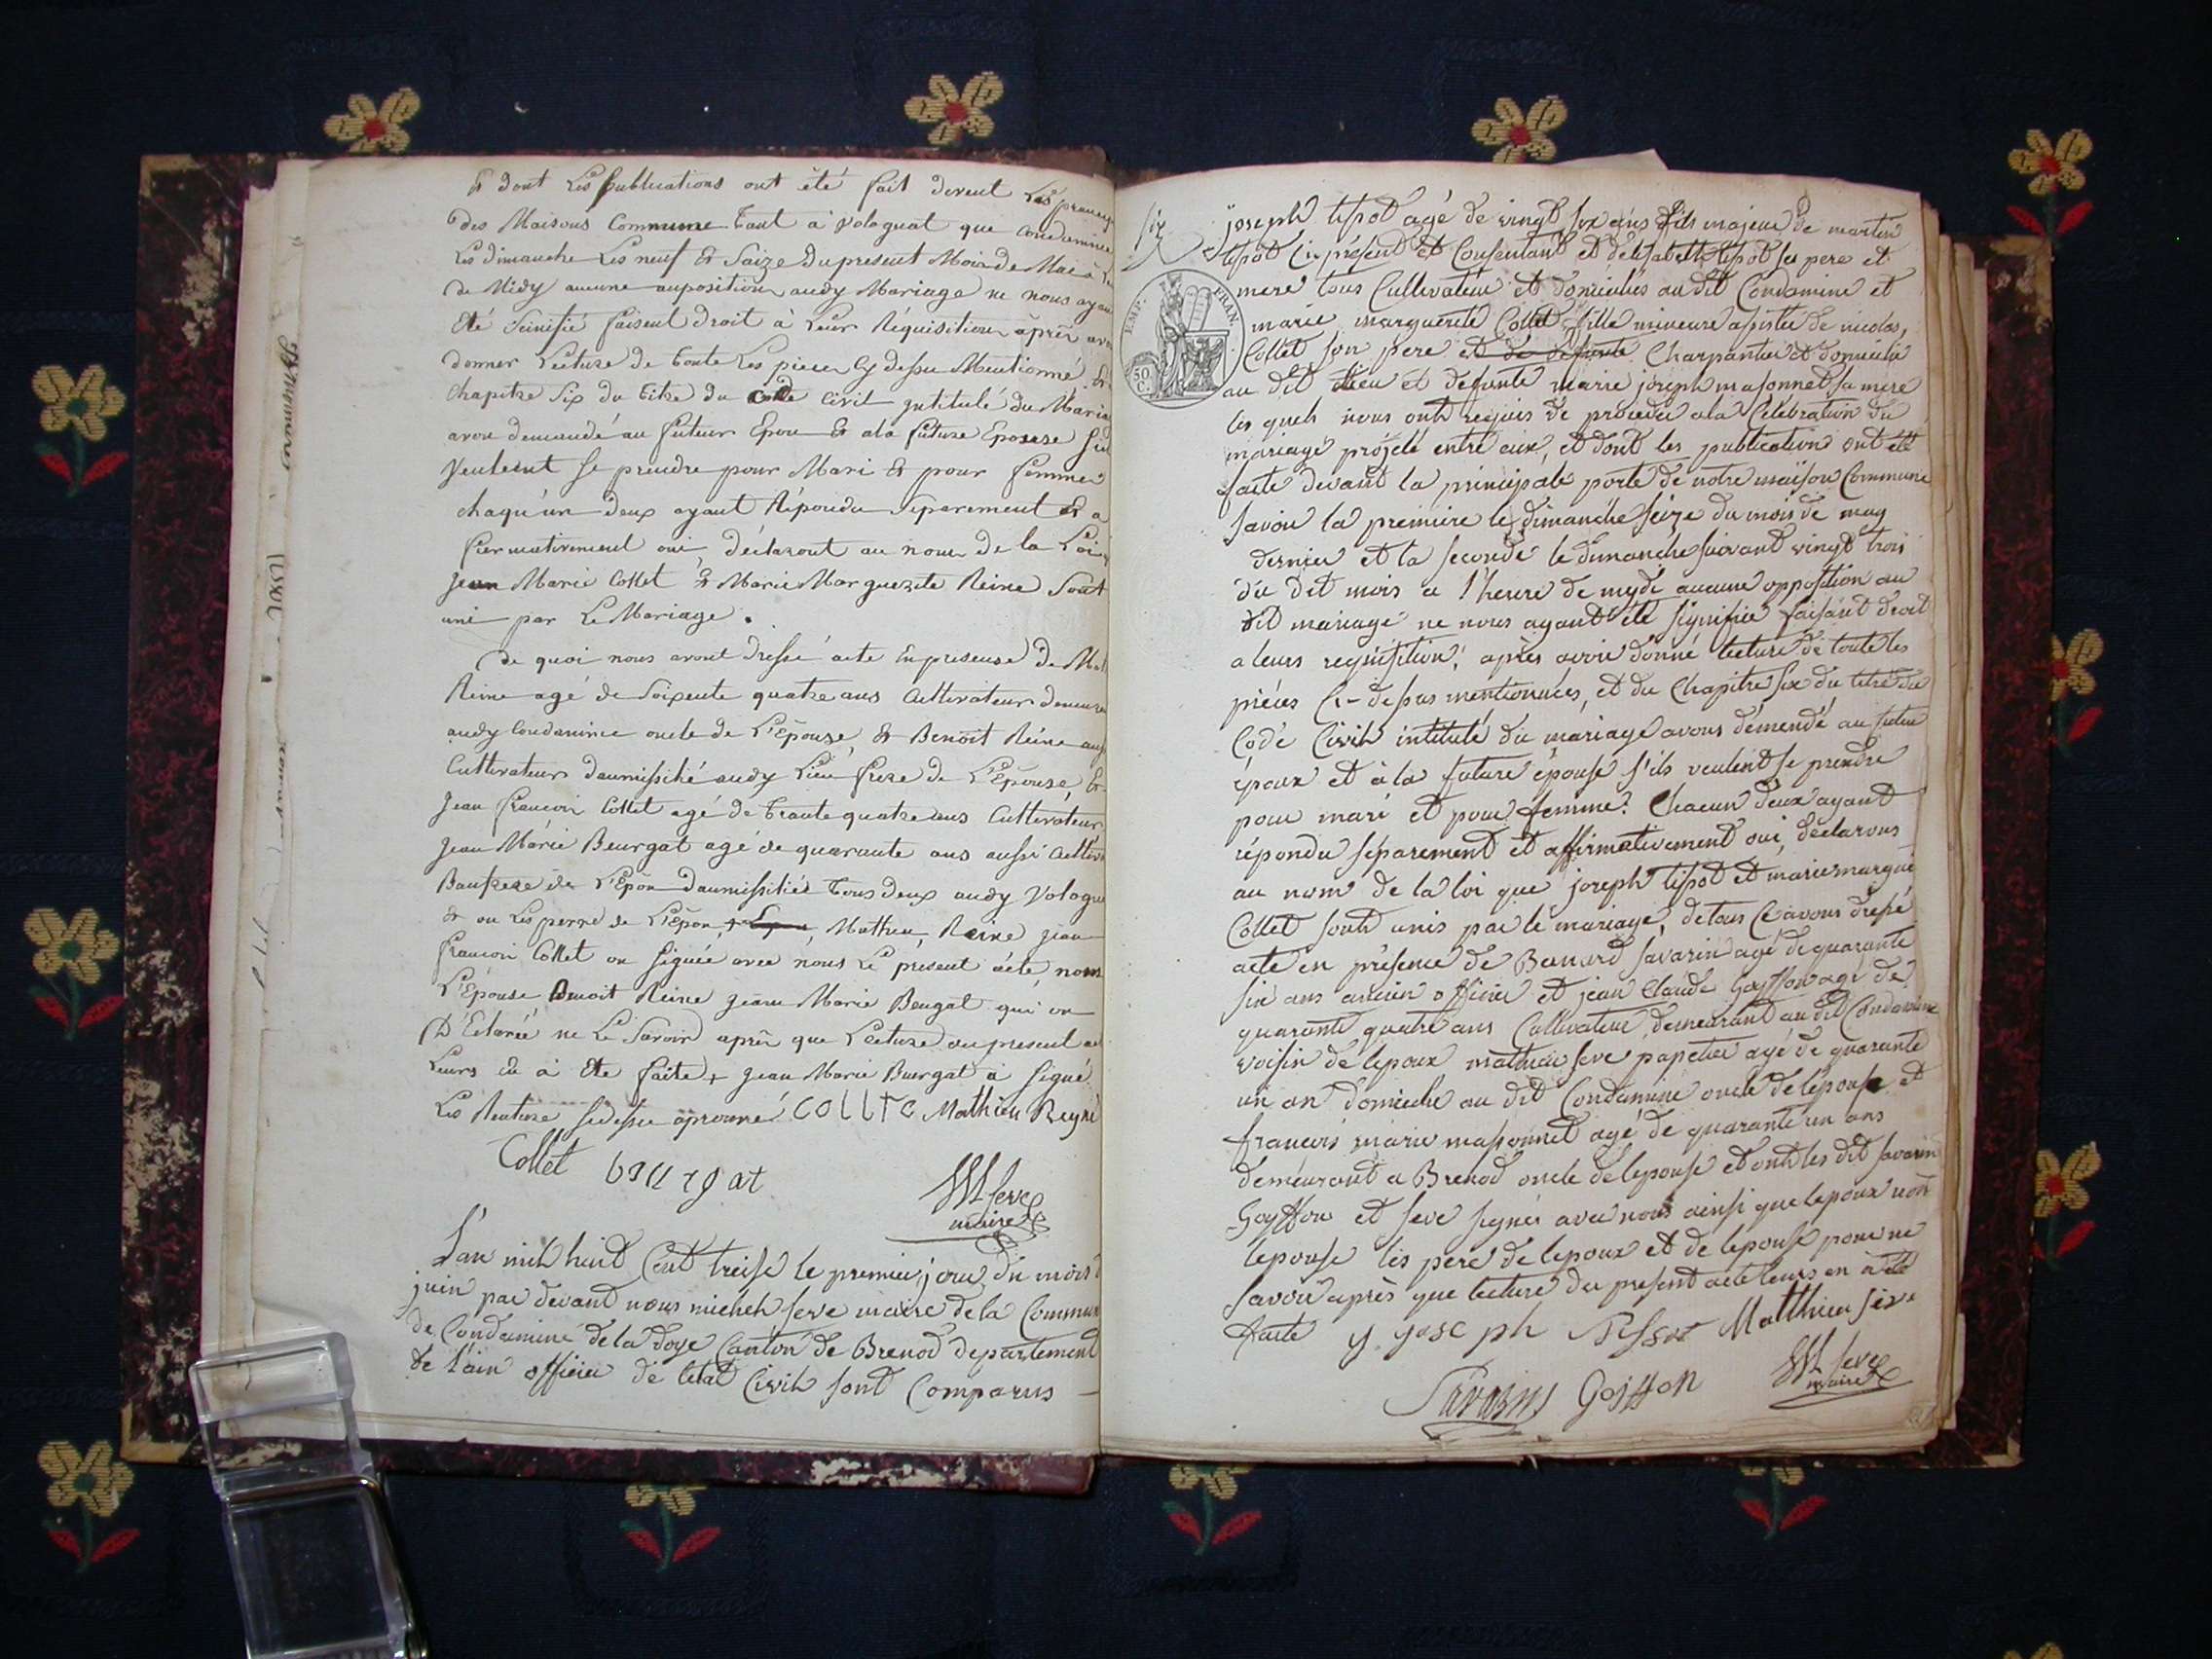 Et dont Les publications ont été fait devent Les
des Maisons Commune tant à Volognat que Condamine
Les dimanche Les neuf Et Saize du present Mois de Mai à
de Midy aucune auposition audy Mariage ne nous ayan
Eté Seinifié faisent droit à Leur Réquisition après avo
donner Lecture de toute Les pieces Cy dessu Mentionné, Et
Chapitre Six du titre du Code Civil Intitulé du Maria
avon demandé au futeur Epou Et ala future Epouse
Veulent Se prendre pour Mari Et pour femme
chaqu'un deux ayant Répondu Séparement Et a
firmativement oui, déclaront au nom de la Loi
Jean Marie Collet Et Marie Marguerite Reine Sont
uni par Le Mariage.
De quoi nous avont dressé acte En presense de Mat
Reine agé de Soixente quatre ans Cultivateur
audy Condamine oncle de L'Epouse, Et Benoit Reine
Cultivateur daumissilié audy Lieu frere de L'Epouse, Et
Jean francoi Collet agé de trante quatre ans Cultivateur
Jean Marie Beurgat agé de quarante ans aussi Cultiva
Baufrere de L'Epou daumissiliés tous deux audy Vologna
Et on Les perre de L'Epou, Mathieu, Reine Jean
francoi Collet on Signée avec nous Le present acte, nom
L'Epouse Benoit Reine Jean Marie Beugat qui on
D'Eclarée ne Le Savoir après que Lecture du present ac
Leurs En à Eté faite + Jean Marie Burgat à Signé
Les Rature sidessu aprouvé COLLTC Mathieu Reyne
Collet bourgat
Seve
maire
L'an mil huit Cent treise le premier jour du mois d
juin par devant nous michel seve maire de la Commun
de Condamine de la doye Canton de Brenod departement
de l'ain officier de l'etat Civil sont Comparus —
six
joseph tissot agé de vingt six ans fils majeur de martin
tissot Ci présent et Consentant et d'elisabeth tissot ses pere et
mere tous Cultivateur et domiciliés au dit Condamine et
marie marguerite Collet fille mineure assistée de nicolas,
Collet son pere et de defunte Charpantier et domicilié
au dit Lieu et defunte marie joseph massonnet sa mere
les quels nous ont requis de proceder ala Celebration du
mariage projeté entre eux, et dont les publication ont été
faite devant la principale porte de notre maison Commune
savoir la premiere le dimanche seize du mois de may
dernier et la seconde le dimanche suivant vingt trois
du dit mois a l'heure de mydi aucune opposition au
dit mariage ne nous ayant été signifiée faisant droit
a leurs requisition, après avoir donné lecture de toute les
piéces Ci-dessus mentionnées, et du Chapitre six du titre du
Code Civil intitulé du mariage avons démendé au futur
époux et à la future épouse s'ils veulent se prendre
pour mari et pour femme? Chacun d'eux ayant
répondu séparement et affirmativement oui, déclarons
au nom de la loi que joseph tissot et marie margue
Collet sont unis par le mariage, de tous Ce avons dressé
acte en présence de Bernard savarin agé de quarante
six ans ancien officier et jean Claude Goyffon agé de
quarante quatre ans Cultivateur, demeurant au dit Condamine
voisin de lepoux mathieu seve papetier agé de quarante
un an domicilié au dit Condamine oncle de lépouse et
francois marie massonnet agé de quarante un ans
demeurant a Brenod oncle de lepouse et ont les dit savarin
Goyffon et seve signés avec nous ainsi que lepoux non
lepouse les pere de lepoux et de lepouse pour ne
savoir après que lecture du present acte leurs en a été
faite y. yoseph Tissot Matthieu seve
Savarin Goiffon
Seve
maire